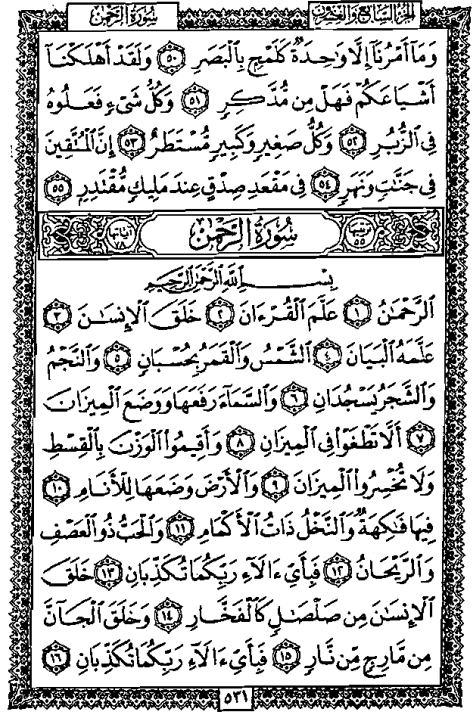 سُورَةُ الرَّحْمَٰن الجزء السابع والعشرون
وَمَآ أَمْرُنَآ إِلَّا وَٰحِدَةٌ كَلَمْحٍۭ بِٱلْبَصَرِ ٥٠ وَلَقَدْ أَهْلَكْنَآ
أَشْيَاعَكُمْ فَهَلْ مِن مُّدَّكِرٍ ٥١ وَكُلُّ شَىْءٍ فَعَلُوهُ
فِى ٱلزُّبُرِ ٥٢ وَكُلُّ صَغِيرٍ وَكَبِيرٍ مُّسْتَطَرٌ ٥٣ إِنَّ ٱلْمُتَّقِينَ
فِى جَنَّٰتٍ وَنَهَرٍ ٥٤ فِى مَقْعَدِ صِدْقٍ عِندَ مَلِيكٍ مُّقْتَدِرٍۭ ٥٥
ترتيبها ٥٥ سُورَةُ الرَّحْمَٰن آياتها ٧٨
بِسْمِ ٱللَّهِ ٱلرَّحْمَٰنِ ٱلرَّحِيمِ
ٱلرَّحْمَٰنُ ١ عَلَّمَ ٱلْقُرْءَانَ ٢ خَلَقَ ٱلْإِنسَٰنَ ٣
عَلَّمَهُ ٱلْبَيَانَ ٤ ٱلشَّمْسُ وَٱلْقَمَرُ بِحُسْبَانٍ ٥ وَٱلنَّجْمُ
وَٱلشَّجَرُ يَسْجُدَانِ ٦ وَٱلسَّمَآءَ رَفَعَهَا وَوَضَعَ ٱلْمِيزَانَ
٧ أَلَّا تَطْغَوْا۟ فِى ٱلْمِيزَانِ ٨ وَأَقِيمُوا۟ ٱلْوَزْنَ بِٱلْقِسْطِ
وَلَا تُخْسِرُوا۟ ٱلْمِيزَانَ ٩ وَٱلْأَرْضَ وَضَعَهَا لِلْأَنَامِ ١٠
فِيهَا فَٰكِهَةٌ وَٱلنَّخْلُ ذَاتُ ٱلْأَكْمَامِ ١١ وَٱلْحَبُّ ذُو ٱلْعَصْفِ
وَٱلرَّيْحَانُ ١٢ فَبِأَىِّ ءَالَآءِ رَبِّكُمَا تُكَذِّبَانِ ١٣ خَلَقَ
ٱلْإِنسَٰنَ مِن صَلْصَٰلٍ كَٱلْفَخَّارِ ١٤ وَخَلَقَ ٱلْجَآنَّ
مِن مَّارِجٍ مِّن نَّارٍ ١٥ فَبِأَىِّ ءَالَآءِ رَبِّكُمَا تُكَذِّبَانِ ١٦
٥٣١